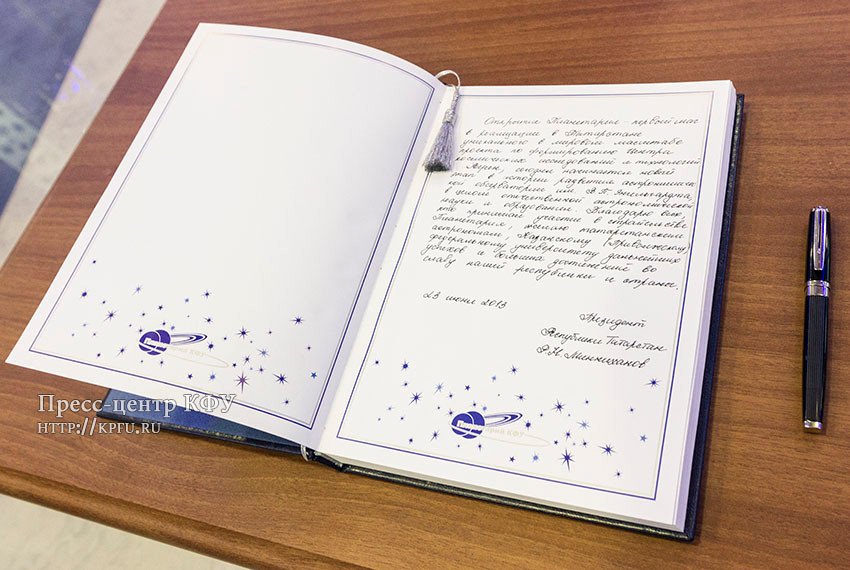 Открытие Планетария - первый шаг
в реализации в Татарстане
уникального в мировом масштабе
проекта по формированию Центра
космических исследований и технологий
Верим, сегодня начинается новый
этап в истории развития астрономичес-
кой обсерватории им. В.П. Энгельгардта,
в целом отечественной астрономической
науки и образования. Благодарю всех,
кто принимал участие в строительстве
Планетария, желаю татарстанским
астрономам, Казанскому (Приволжскому)
федеральному университету дальнейших
успехов и больших достижений во
славу нашей республики и страны.
23 июня 2013
Президент
Республики Татарстан
Р.Н. Минниханов
Планетарий КФУ
Планетарий КФУ
Пресс-центр КФУ
HTTP://KPFU.RU